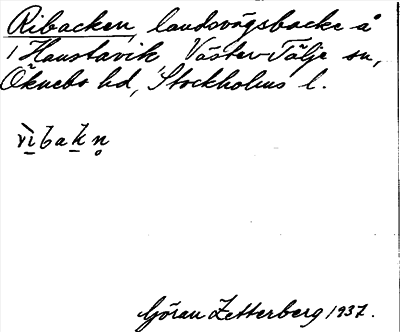 Ribacken, landsvägsbacke å
1 Haustavik Väster-Tälje sn,
Öknebo hd, Stockholms l.
ribakn
Göran Zetterberg 1937.